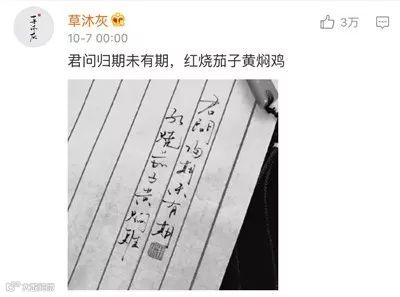 草沐灰
3万
10-7 00:00
君问归期未有期，红烧茄子黄焖鸡
君问归期未有期
红烧茄子黄焖鸡